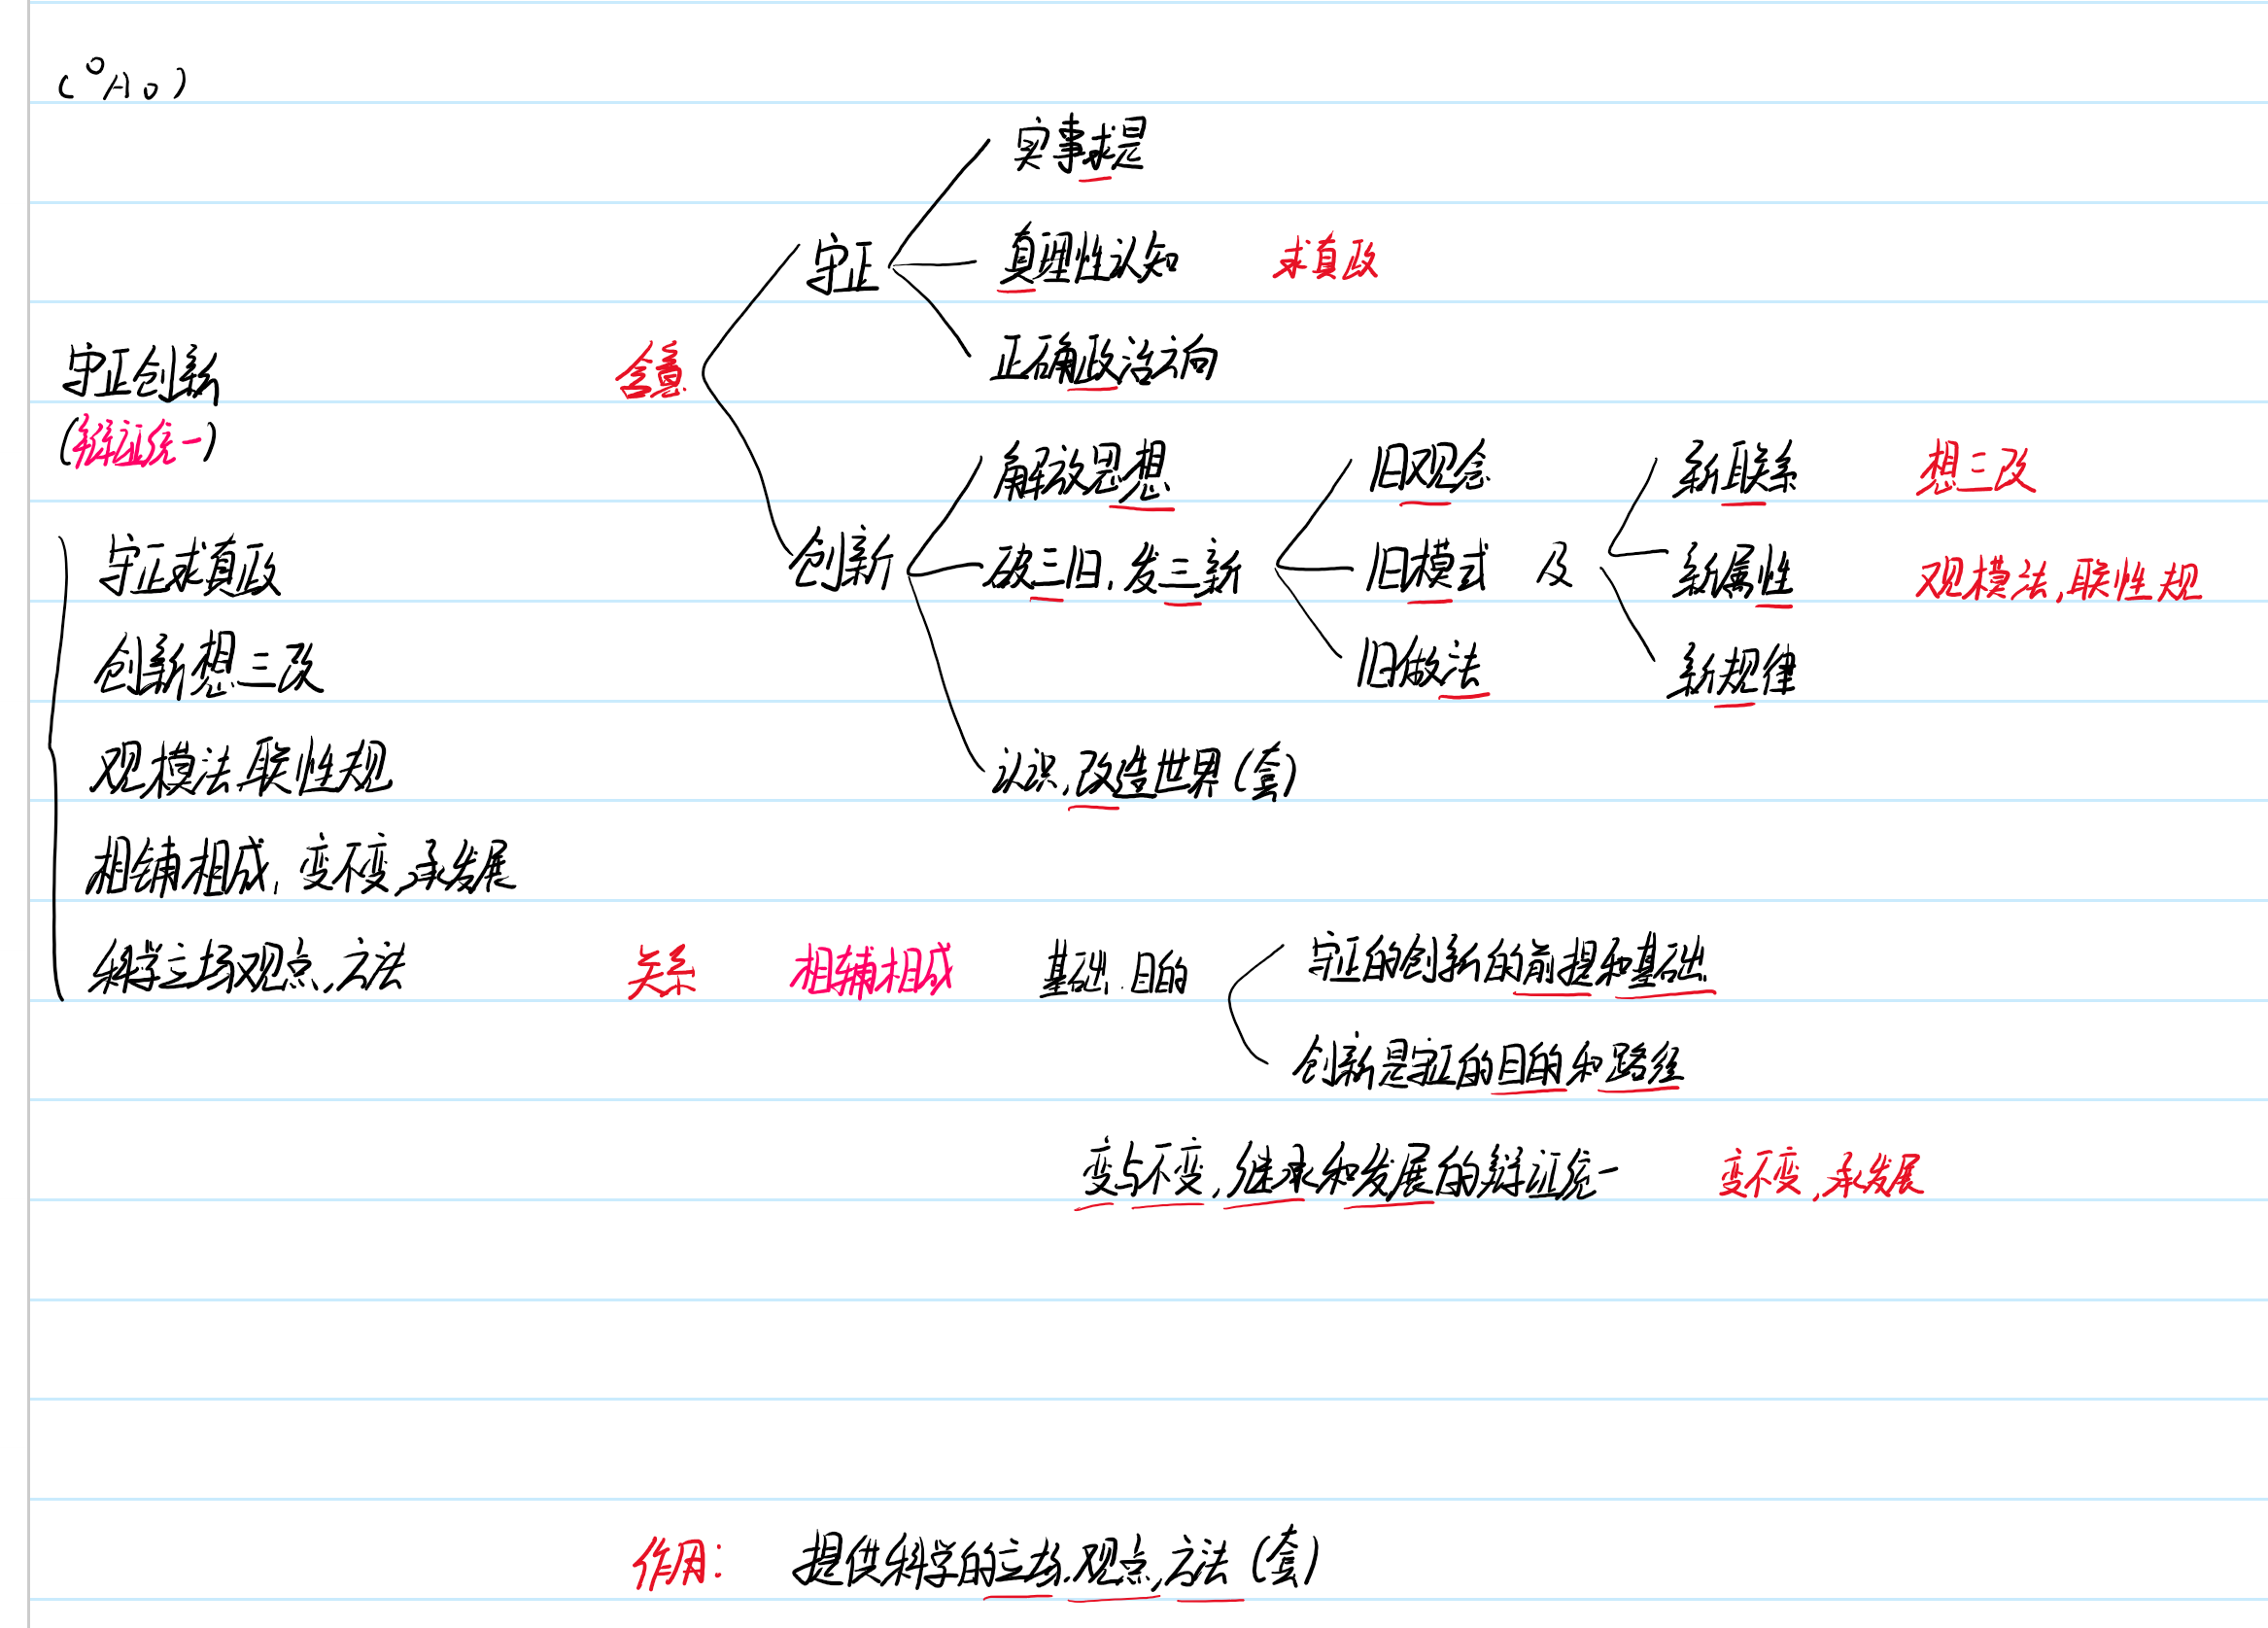 (°A o)
实事求是
守正 真理性认知 求真政
正确政治方向
守正创新 含意
(辩证统一)
解放思想 旧观念 新联系 想三改
创新 破三旧,发三新 旧模式 及 新属性 观模法,联性规
旧做法 新规律
认识,改造世界(套)
守正求真政
创新想三改
观模法,联性规
相辅相成,变不变,承发展
科学立场观点,方法
关系 相辅相成 基础.目的 守正的创新的前提和基础
创新是守正的目的和路径
变与不变,继承和发展的辩证统一 变不变,承发展
作用: 提供科学的立场.观点,方法(套)